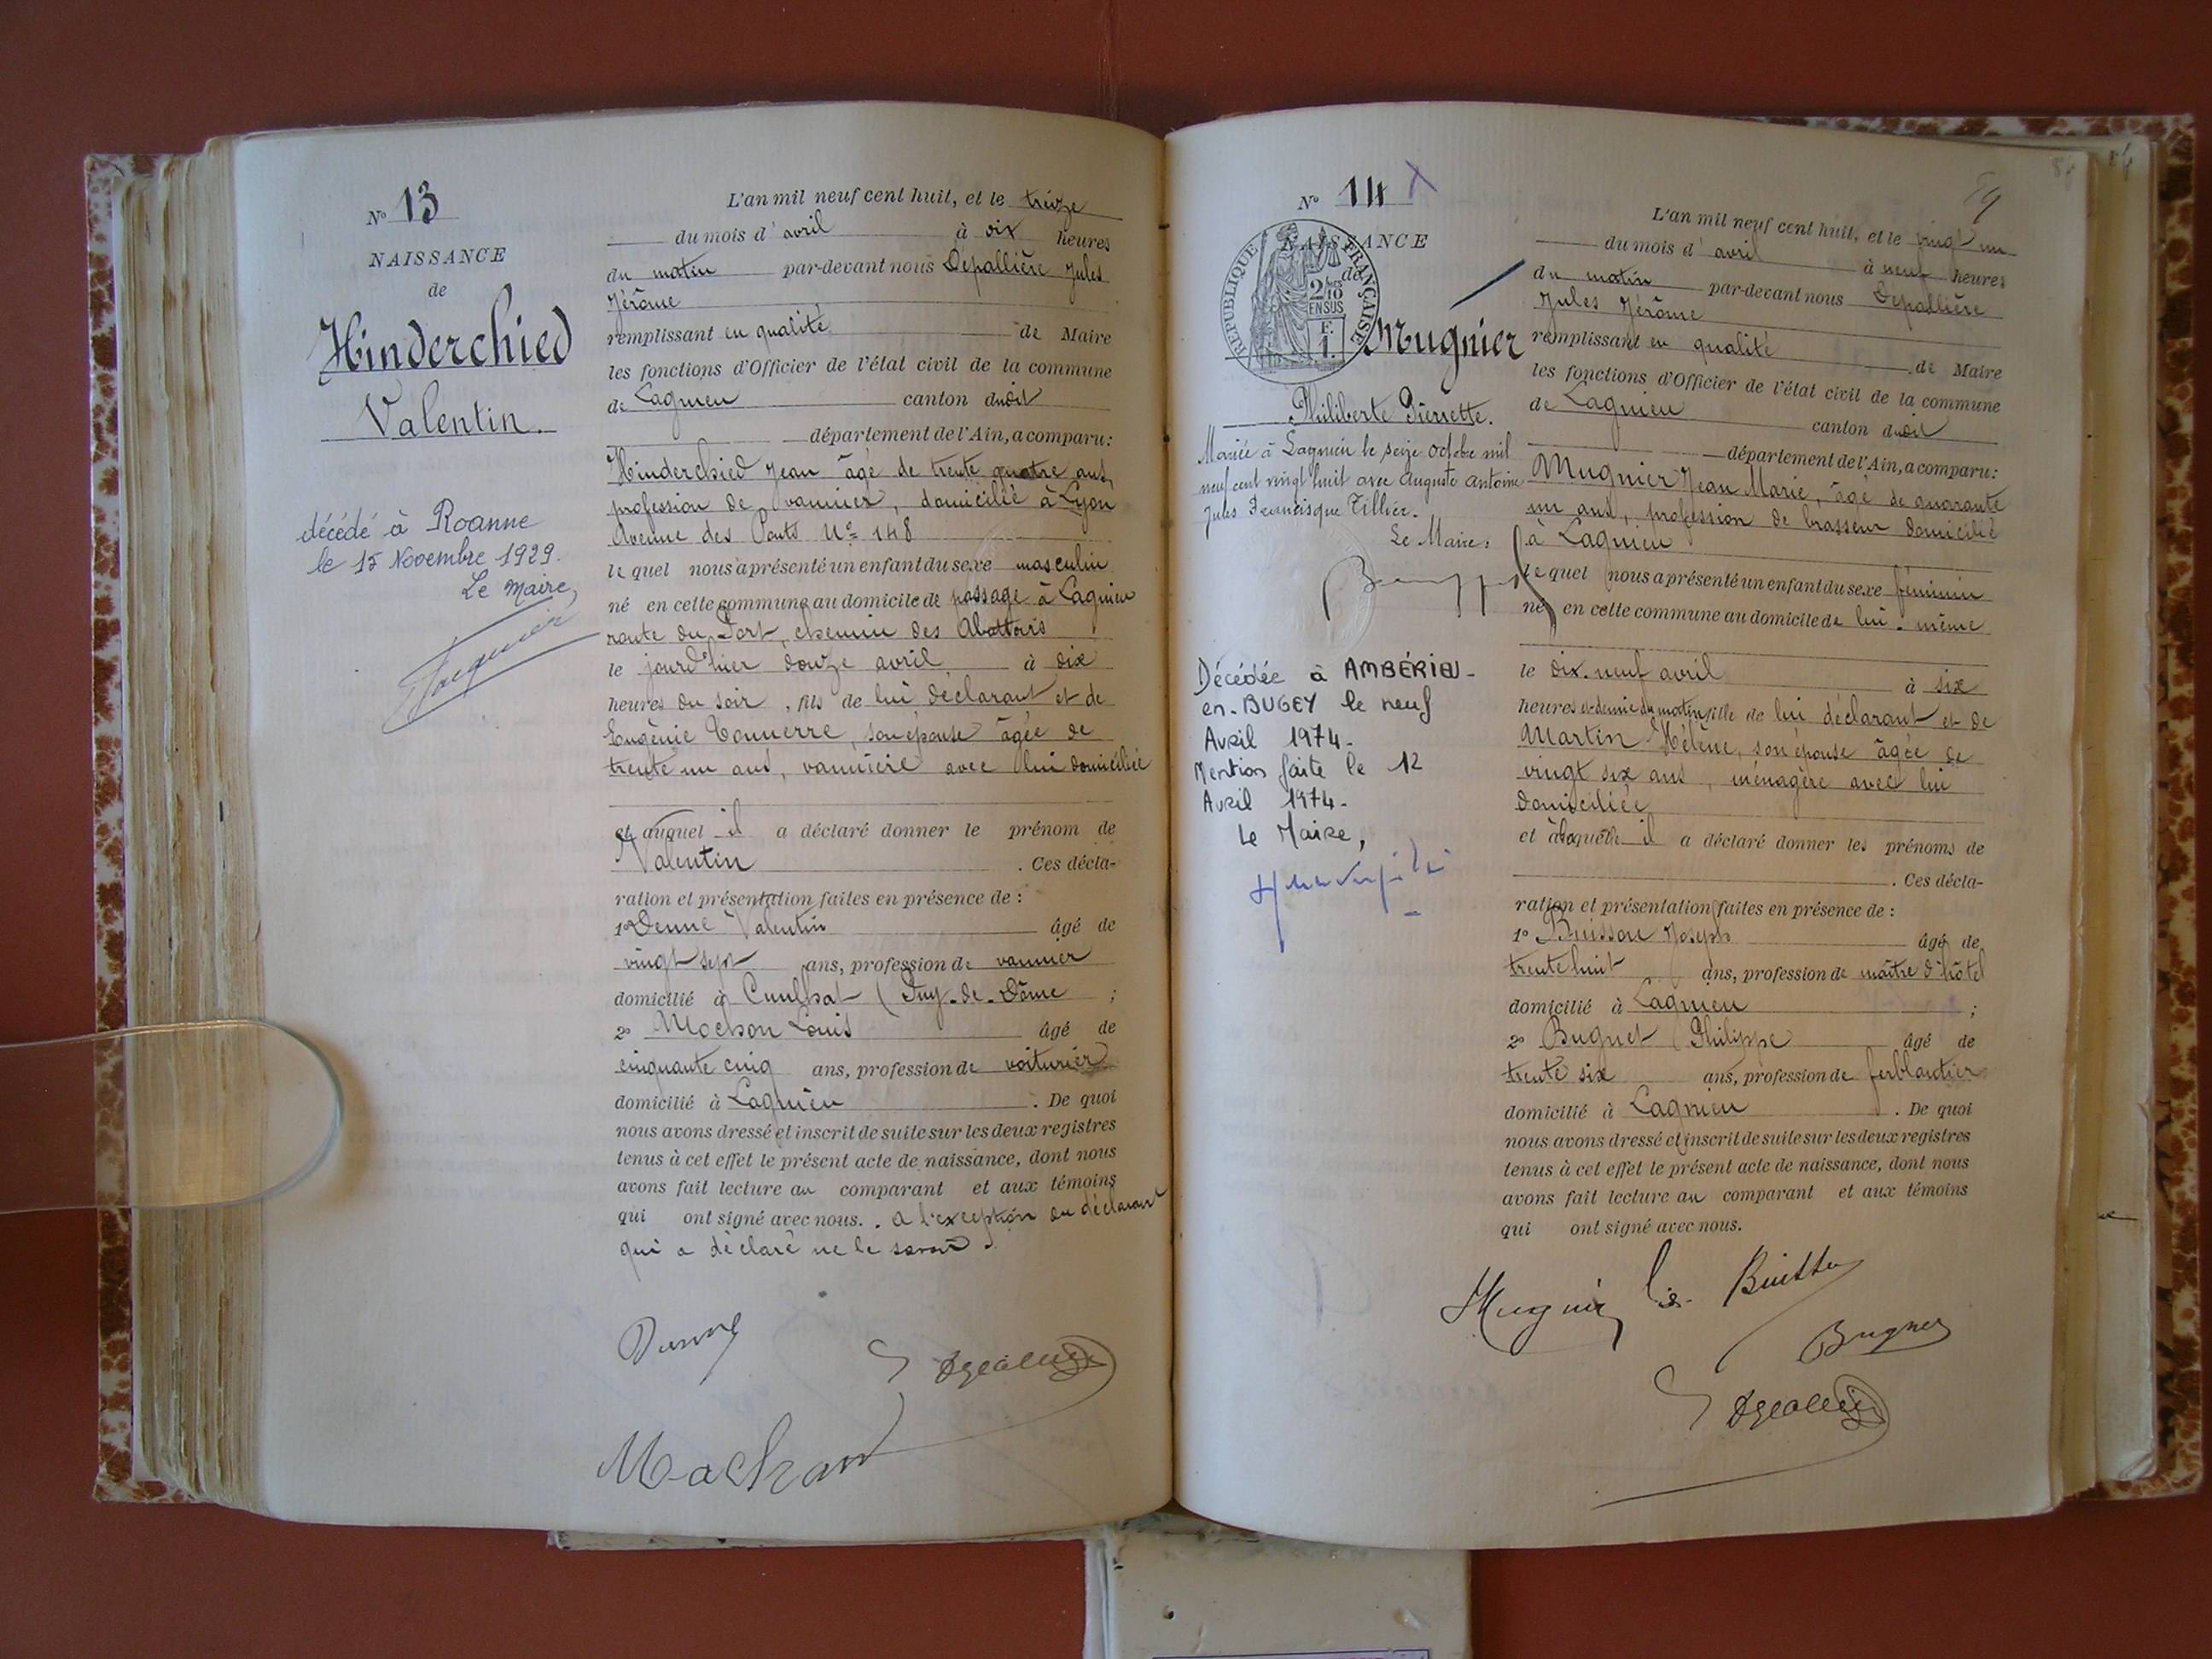 N° 13
NAISSANCE
de
Hinderchied
Valentin.
décédé à Roanne
le 15 Novembre 1929.
Le Maire,
L'an mil neuf cent huit, et le treize
du mois d'avril à dix heures
du matin par-devant nous Depallière Jules
Jérôme
remplissant en qualité de Maire
les fonctions d'Officier de l'état civil de la commune
de Lagnieu canton dudit
département de l'Ain, a comparu:
Hinderchied Jean âgé de trente quatre ans,
profession de vannier, domicilié à Lyon
Avenue des Ponts N° 148
le quel nous a présenté un enfant du sexe masculin
né en cette commune au domicile de passage à Lagnieu
route du Port, chemin des Abattoirs
le jourd'hier douze avril à dix
heures du soir, fils de lui déclarant et de
Eugénie Tonnerre, son épouse âgée de
trente un ans, vannière avec lui domiciliée
et auquel il a déclaré donner le prénom de
Valentin. Ces décla-
ration et présentation faites en présence de :
1° Denne Valentin âgé de
vingt sept ans, profession de vannier
domicilié à Cunlhat (Puy-de-Dôme ;
2° Mochon Louis âgé de
cinquante cinq ans, profession de voiturier
domicilié à Lagnieu. De quoi
nous avons dressé et inscrit de suite sur les deux registres
tenus à cet effet le présent acte de naissance, dont nous
avons fait lecture au comparant et aux témoins
qui ont signé avec nous. . a l'exception du déclarant
qui a déclaré ne le savoir.
Denne
Mochon
N° 14 X
NAISSANCE
de
RÉPUBLIQUE FRANÇAISE
2/10 EN SUS
F.
1.
Mugnier
Philiberte Pierrette.
Mariée à Lagnieu le seize octobre mil
neuf cent vingt huit avec Auguste Antoine
Jules Francisque Tillier.
Le Maire:
Décédée à AMBÉRIEU-
en-BUGEY le neuf
Avril 1974-
Mention faite le 12
Avril 1974-
Le Maire,
L'an mil neuf cent huit, et le vingt un
du mois d'avril à neuf heures
du matin par-devant nous Depallière
Jules Jérôme
remplissant en qualité de Maire
les fonctions d'Officier de l'état civil de la commune
de Lagnieu canton dudit
département de l'Ain, a comparu:
Mugnier Jean Marie, âgé de quarante
un ans, profession de brasseur domicilié
à Lagnieu
le quel nous a présenté un enfant du sexe féminin
né en cette commune au domicile de lui-même
le dix-neuf avril à six
heures et demie du matin fille de lui déclarant et de
Martin Hélène, son épouse âgée de
vingt six ans, ménagère avec lui
domiciliée
et à laquelle il a déclaré donner les prénoms de
. Ces décla-
ration et présentation faites en présence de :
1° Buisson Joseph âgé de
trente huit ans, profession de maître d'hôtel
domicilié à Lagnieu ;
2° Bugnet Philippe âgé de
trente six ans, profession de ferblantier
domicilié à Lagnieu. De quoi
nous avons dressé et inscrit de suite sur les deux registres
tenus à cet effet le présent acte de naissance, dont nous
avons fait lecture au comparant et aux témoins
qui ont signé avec nous.
Mugnier Buisson
Bugnet